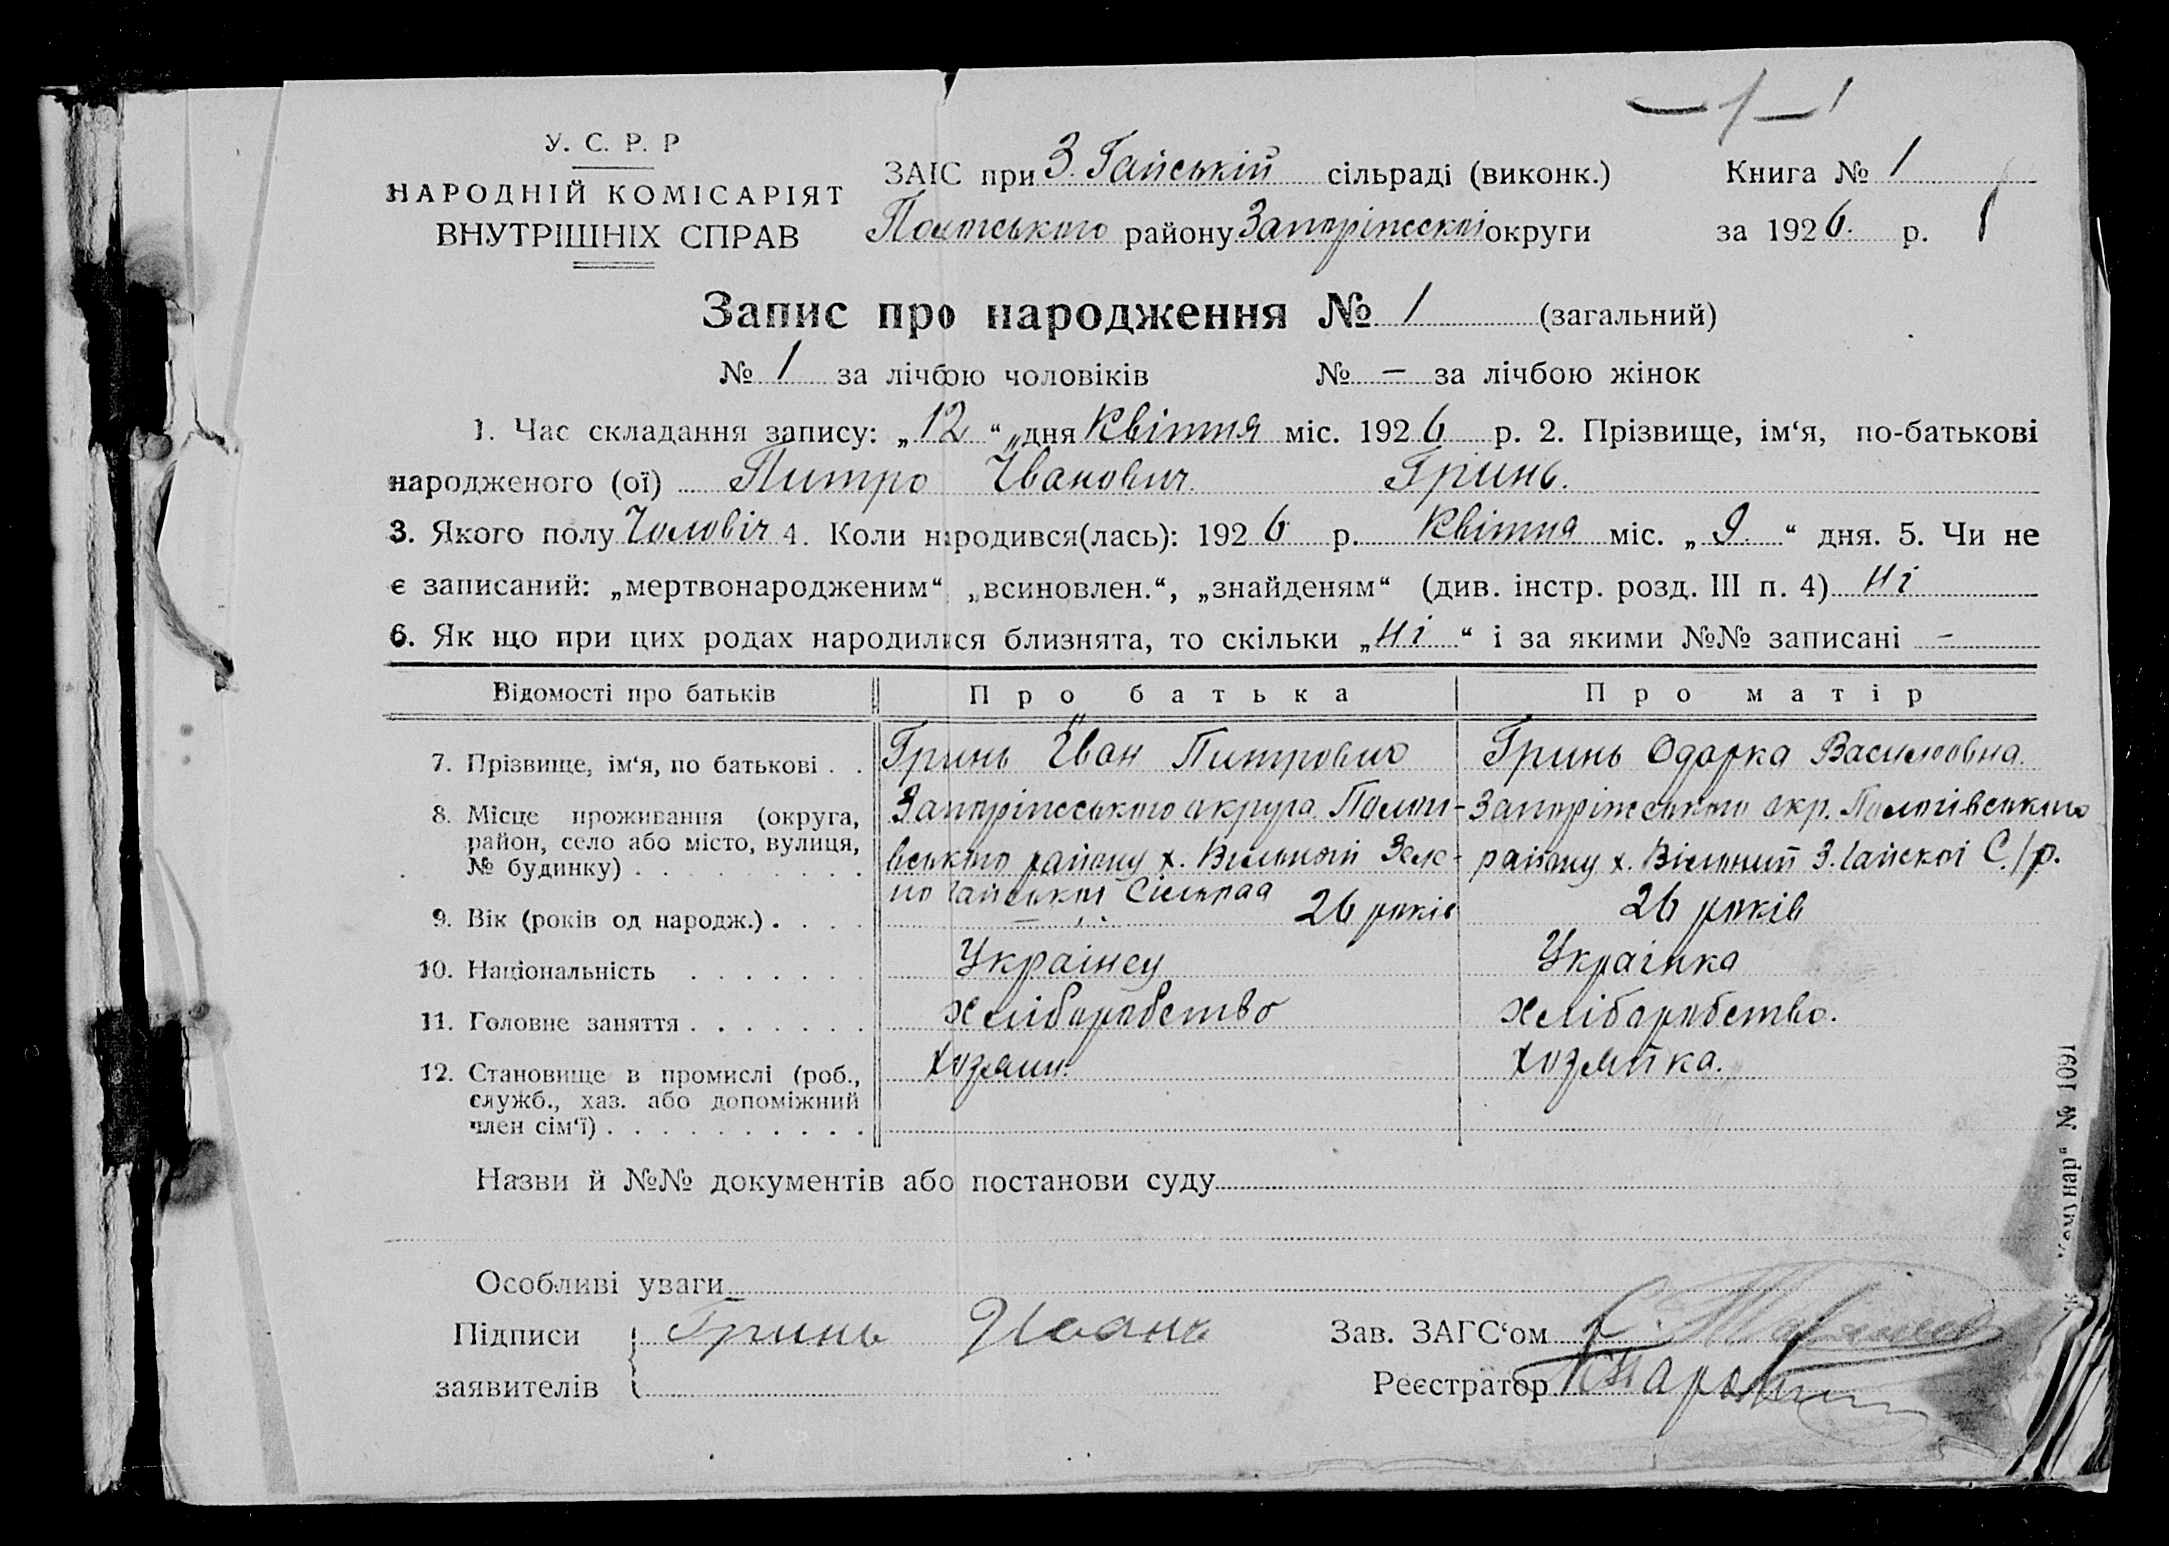 — 1 — 1
У. С. Р. Р
НАРОДНІЙ КОМІСАРІЯТ
ВНУТРІШНІХ СПРАВ
ЗАІС при З. Гайській сільраді (виконк.) Книга № 1
району округи за 1926. р. 1
Запис про народження № 1 (загальний)
№ 1 за лічбою чоловіків № — за лічбою жінок
1. Час складання запису: „12“ „дня Квітня міс. 1926 р. 2. Прізвище, ім‘я, по-батькові
народженого (ої) Питро Іванович Гринь.
3. Якого полу Чоловіч 4. Коли народився(лась): 1926 р. Квітня міс. „9.“ дня. 5. Чи не
є записаний: „мертвонародженим“ „всиновлен.“, „знайденям“ (див. інстр. розд. III п. 4) Ні
6. Як що при цих родах народилися близнята, то скільки „Ні“ і за якими №№ записані —
Відомості про батьків Про батька Про матір
7. Прізвище, ім‘я, по батькові . . Гринь Іван Питрович Гринь Одарка Василовна.
8. Місце проживання (округа, округа Запоріжського окр. Пологівського
район, село або місто, вулиця, району х. Вільний району х. Вільний З. Гайскоі С./р.
№ будинку)
9. Вік (років од народж.) . . . . 26 років 26 років
10. Національність Украінец Украінка
11. Головне заняття Хліборобство Хліборобство.
12. Становище в промислі (роб., Хозяин. Хозяйка.
служб., хаз. або допоміжний
член сім‘ї)
Назви й №№ документів або постанови суду
Особливі уваги
Підписи Гринь Иванъ Зав. ЗАГС‘ом
заявителів Реєстратор
Комунар“ № 1091